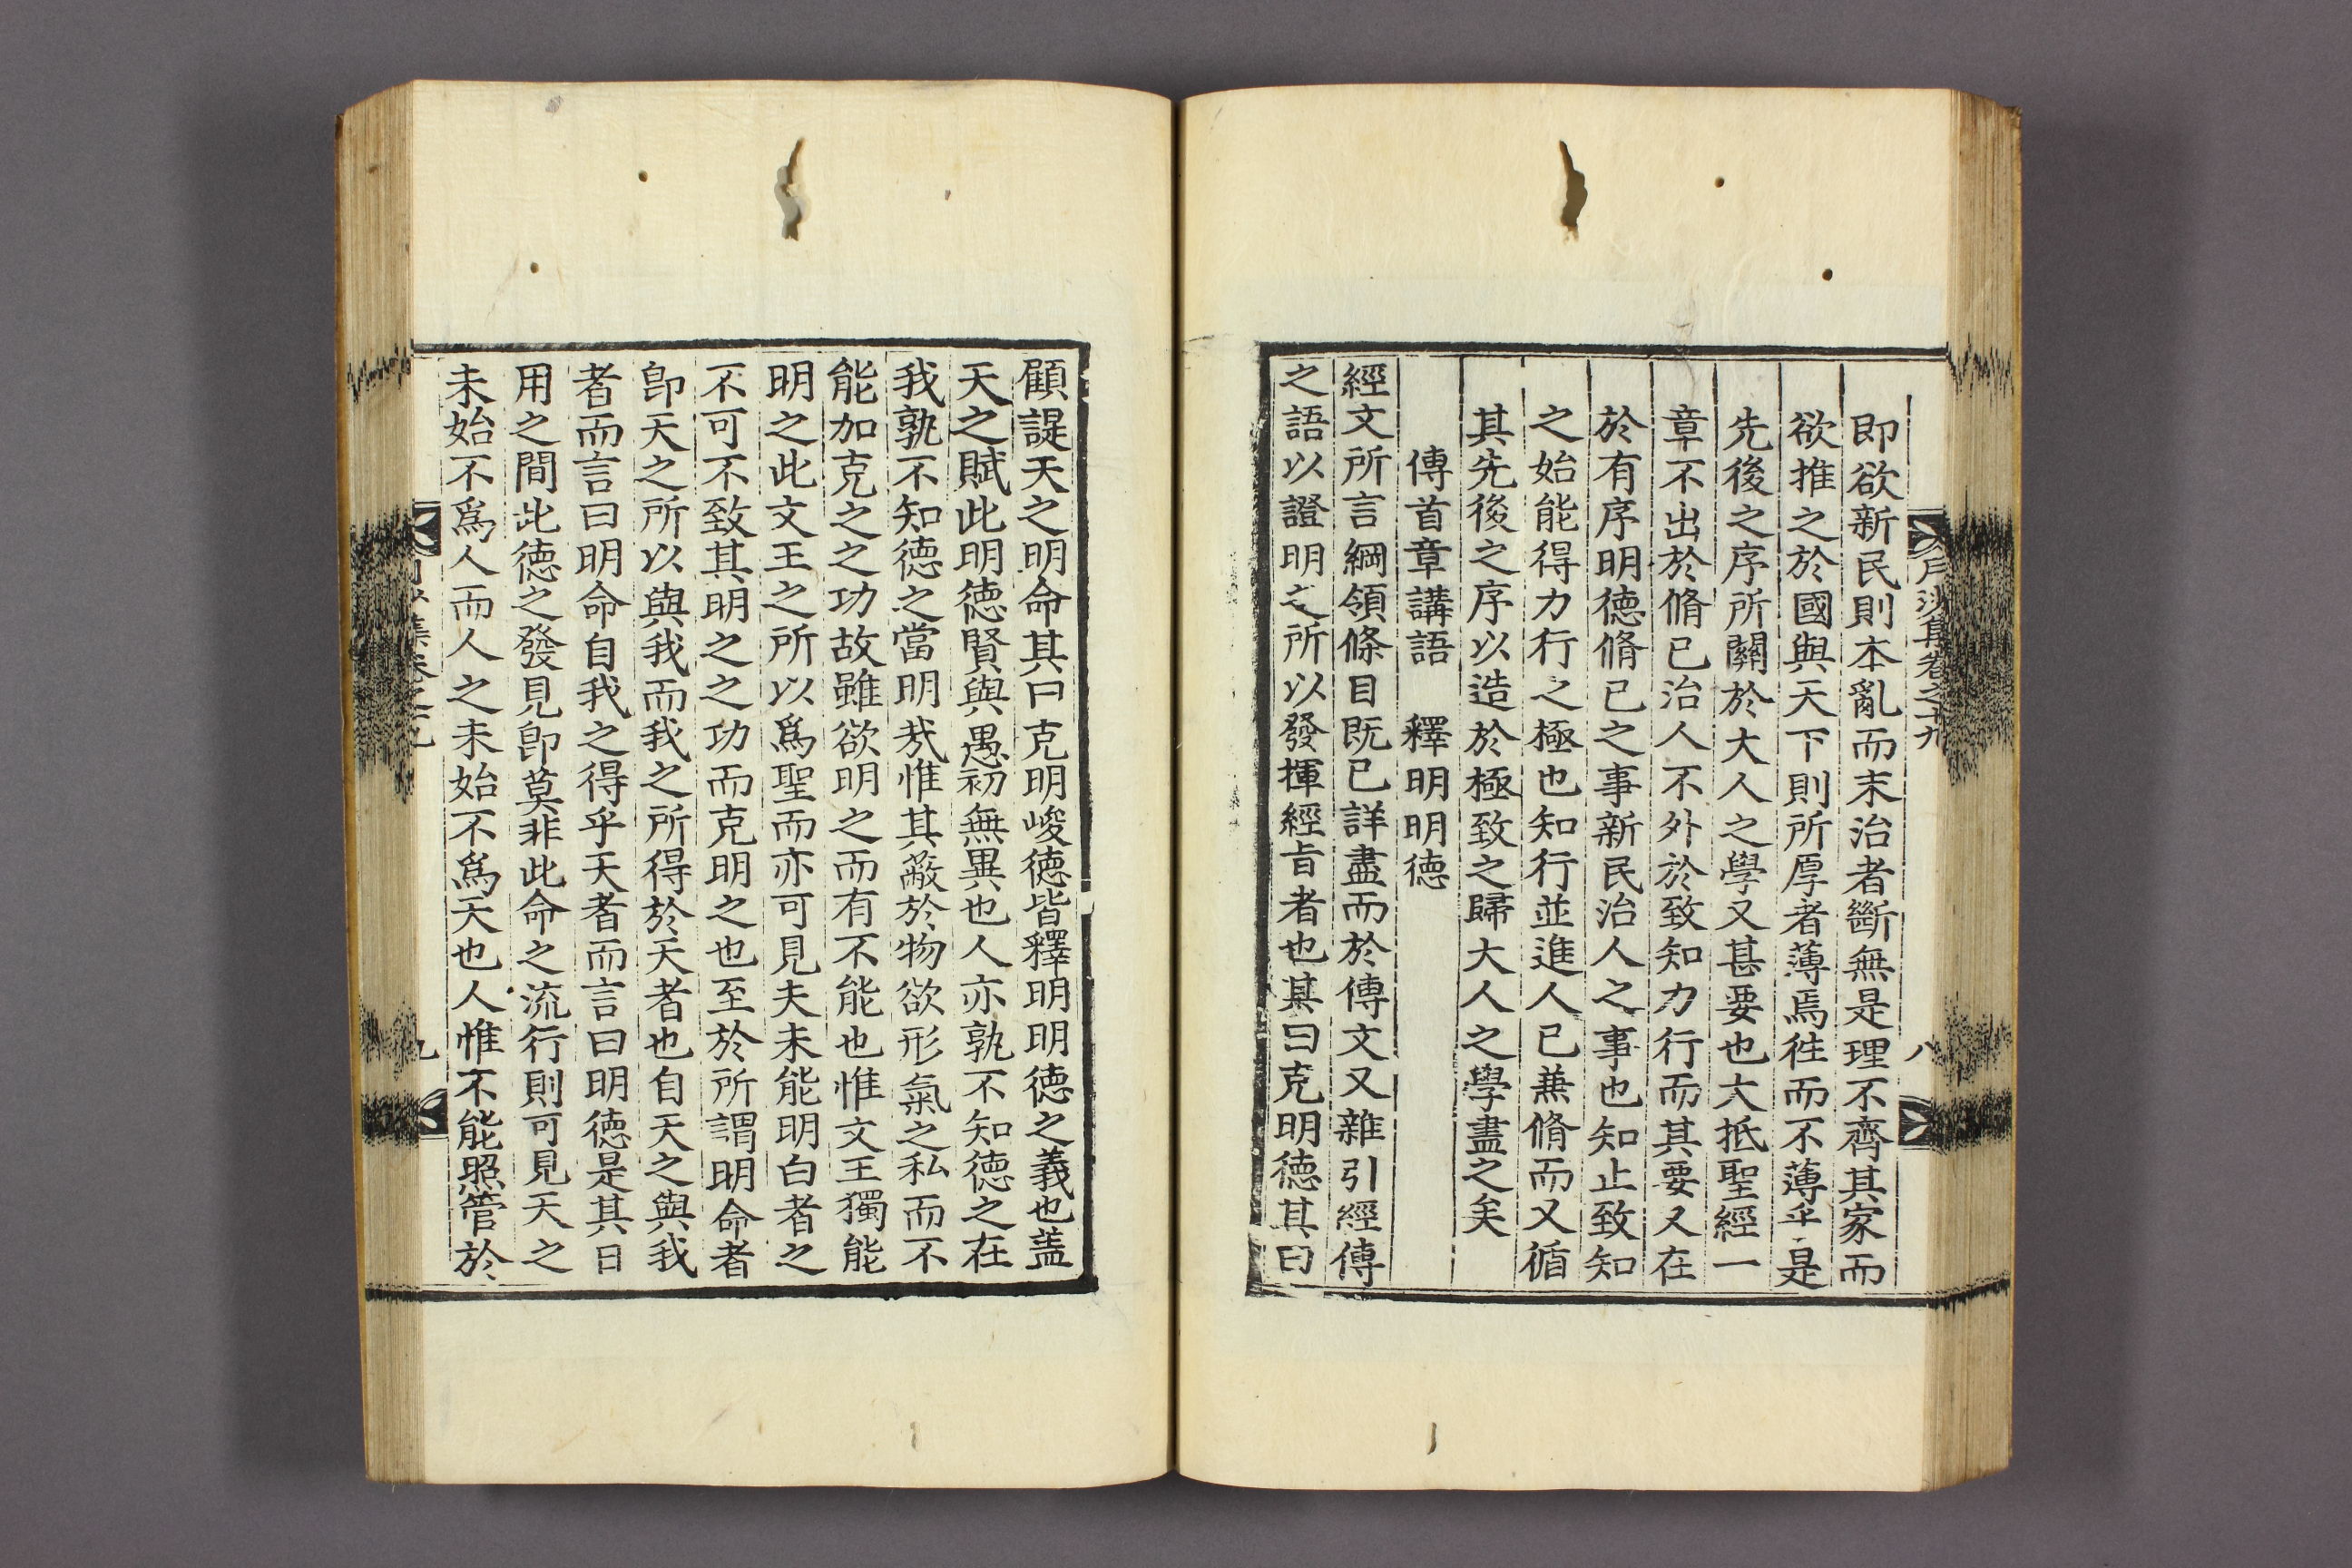 月沙集卷之十九
八
即欲新民則本亂而末治者斷無是理不齊其家而
欲推之於國與天下則所厚者薄焉徃而不薄乎是
先後之序所關於大人之學又甚要也大抵聖經一
章不出於脩已治人不外於致知力行而其要又在
於有序明德脩已之事新民治人之事也知止致知
之始能得力行之極也知行並進人已兼脩而又循
其先後之序以造於極致之歸大人之學盡之矣
傳首章講語　釋明明德
經文所言綱領條目既已詳盡而於傳文又雜引經傳
之語以證明之所以發揮經旨者也其曰克明德其曰
顧諟天之明命其曰克明峻德皆釋明明德之義也蓋
天之賦此明德賢與愚初無異也人亦孰不知德之在
我孰不知德之當明哉惟其蔽於物欲形氣之私而不
能加克之之功故雖欲明之而有不能也惟文王獨能
明之此文王之所以爲聖而亦可見夫未能明白者之
不可不致其明之之功而克明之也至於所謂明命者
卽天之所以與我而我之所得於天者也自天之與我
者而言曰明命自我之得乎天者而言曰明德是其日
用之間此德之發見卽莫非此命之流行則可見天之
未始不爲人而人之未始不爲天也人惟不能照管於
集卷之十九
九